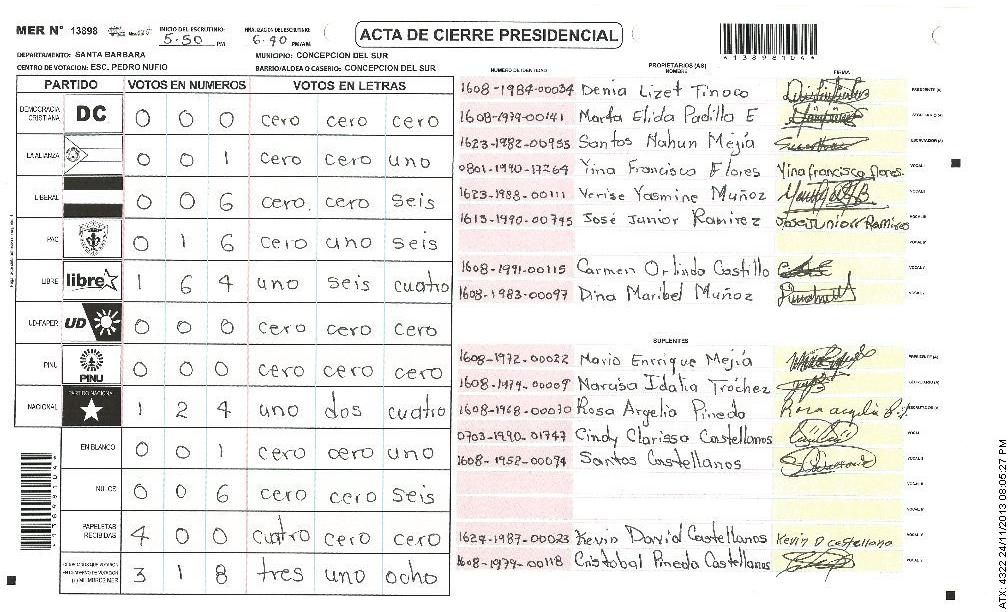 MER N° 13898
INICIO DEL ESCRUTINIO: 5:50 PM
FINALIZACION DEL ESCRUTINIO: 6:40 PM/AM
ACTA DE CIERRE PRESIDENCIAL
DEPARTAMENTO: SANTA BARBARA
MUNICIPIO: CONCEPCION DEL SUR
CENTRO DE VOTACION: ESC. PEDRO NUFIO
BARRIO/ALDEA O CASERIO: CONCEPCION DEL SUR
PARTIDO VOTOS EN NUMEROS VOTOS EN LETRAS
DEMOCRACIA CRISTIANA DC 0 0 0 cero cero cero
LA ALIANZA 0 0 1 cero cero uno
LIBERAL 0 0 6 cero cero seis
PAC 0 1 6 cero uno seis
LIBRE libre 1 6 4 uno seis cuatro
UD-FAPER UD 0 0 0 cero cero cero
PINU PINU 0 0 0 cero cero cero
NACIONAL PARTIDO NACIONAL 1 2 4 uno dos cuatro
EN BLANCO 0 0 1 cero cero uno
NULOS 0 0 6 cero cero seis
PAPELETAS RECIBIDAS 4 0 0 cuatro cero cero
3 1 8 tres uno ocho
PROPIETARIOS (AS)
NUMERO DE IDENTIDAD NOMBRE FIRMA
1608-1984-00034 Denia Lizet Tinoco PRESIDENTE (A)
1608-1979-00141 Marta Elida Padilla E SECRETARIO (A)
1623-1982-00955 Santos Nahun Mejía ESCRUTADOR (A)
0801-1990-17264 Yina Francisco Flores Yina francisco flores. VOCAL I
1623-1988-00111 Verise Yasmine Muñoz VOCAL II
1613-1990-00795 José Junior Ramirez Jose Junior Ramirez VOCAL III
VOCAL IV
1608-1991-00115 Carmen Orlindo Castillo VOCAL V
1608-1983-00097 Dina Maribel Muñoz
SUPLENTES
1608-1972-00022 Mario Enrrique Mejía PRESIDENTE (A)
1608-1974-00009 Narcisa Idalia Tróchez SECRETARIO (A)
1608-1968-00070 Rosa Argelia Pineda Rosa argelia P. ESCRUTADOR (A)
0703-1990-01747 Cindy Clarissa Castellanos VOCAL I
1608-1952-00094 Santos Castellanos VOCAL II
VOCAL III
VOCAL IV
1624-1987-00023 Kevin David Castellanos Kevin D castellano VOCAL V
1608-1979-00118 Cristobal Pineda Castellanos
*13898104*
ATX: 4322 24/11/2013 08:05:27 PM